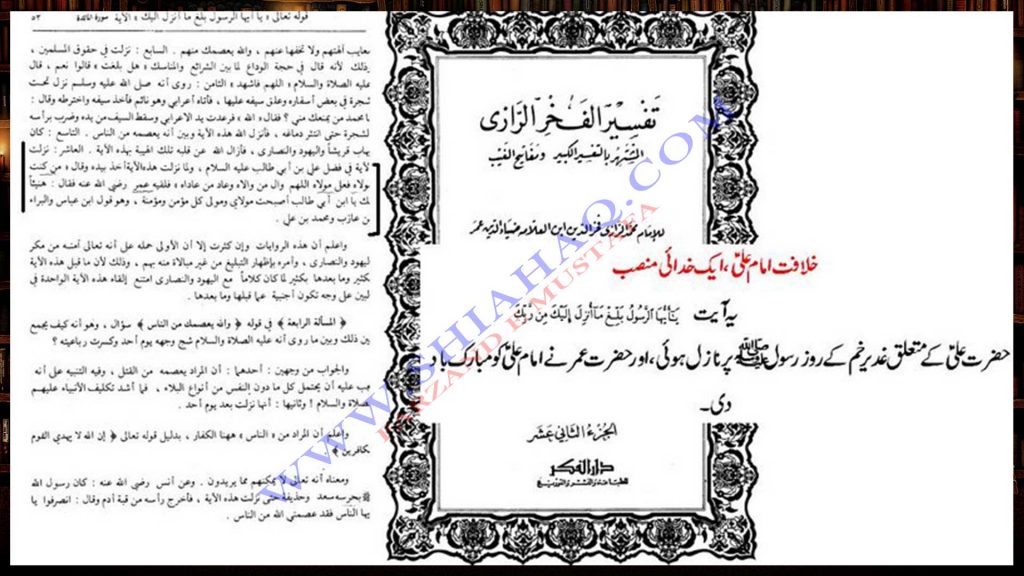 قوله تعالى « يا أيها الرسول بلغ ما أنزل اليك » الآية سورة المائدة ٥٣
معايب آلهتهم ولا تخفها عنهم ، والله يعصمك منهم . السابع : نزلت في حقوق المسلمين ،
ذلك لأنه قال في حجة الوداع لما بين الشرائع والمناسك « هل بلغت » قالوا نعم ، قال
عليه الصلاة والسلام « اللهم فاشهد » الثامن : روى أنه صلى الله عليه وسلم نزل تحت
شجرة في بعض أسفاره وعلق سيفه عليها ، فأتاه أعرابي وهو نائم فأخذ سيفه واخترطه وقال :
يا محمد من يمنعك مني ؟ فقال « الله » فرعدت يد الاعرابي وسقط السيف من يده وضرب برأسه
لشجرة حتى انتثر دماغه ، فأنزل الله هذه الآية وبين أنه يعصمه من الناس . التاسع : كان
يهاب قريشاً واليهود والنصارى ، فأزال الله عن قلبه تلك الهيبة بهذه الآية . العاشر : نزلت
لآية في فضل علي بن أبي طالب عليه السلام ، ولما نزلت هذه الآية أخذ بيده وقال « من كنت
مولاه فعلي مولاه اللهم وال من والاه وعاد من عاداه » فلقيه عمر رضي الله عنه فقال : هنيئاً
لك يا ابن أبي طالب أصبحت مولاي ومولى كل مؤمن ومؤمنة ، وهو قول ابن عباس والبراء
بن عازب ومحمد بن علي .
واعلم أن هذه الروايات وإن كثرت إلا أن الأولى حمله على أنه تعالى آمنه من مكر
ليهود والنصارى ، وأمره بإظهار التبليغ من غير مبالاة منه بهم ، وذلك لأن ما قبل هذه الآية
كثير وما بعدها بكثير لما كان كلاماً مع اليهود والنصارى امتنع إلقاء هذه الآية الواحدة في
لبين على وجه تكون أجنبية عما قبلها وما بعدها .
﴿ المسألة الرابعة ﴾ في قوله ﴿ والله يعصمك من الناس ﴾ سؤال ، وهو أنه كيف يجمع
بين ذلك وبين ما روى أنه عليه الصلاة والسلام شج وجهه يوم أحد وكسرت رباعيته ؟
والجواب من وجهين : أحدهما : أن المراد يعصمه من القتل ، وفيه التنبيه على أنه
يجب عليه أن يحتمل كل ما دون النفس من أنواع البلاء ، فما أشد تكليف الأنبياء عليهم
لصلاة والسلام ! وثانيها : أنها نزلت بعد يوم أحد .
واعلم أن المراد من « الناس » ههنا الكفار ، بدليل قوله تعالى ﴿ إن الله لا يهدي القوم
لكافرين ﴾
ومعناه أنه تعالى لا يمكنهم مما يريدون . وعن أنس رضي الله عنه : كان رسول الله
ﷺ يحرسه سعد وحذيفة حتى نزلت هذه الآية ، فأخرج رأسه من قبة أدم وقال : انصرفوا يا
أيها الناس فقد عصمني الله من الناس .
تفسير الفخر الرازى
المشتهر بالتفسير الكبير ومفاتيح الغيب
للإمام محمد الرازى فخر الدين ابن العلامة ضياء الدين عمر
خلافت امام علیؑ ، ایک خدائی منصب
یہ آیت يَٰٓأَيُّهَا ٱلرَّسُولُ بَلِّغْ مَآ أُنزِلَ إِلَيْكَ مِن رَّبِّكَ
حضرت علیؑ کے متعلق غدیر خم کے روز رسول ﷺ پر نازل ہوئی ، اور حضرت عمر نے امام علیؑ کو مبارک باد
دی ۔
الجزء الثاني عشر
دار الفكر
للطباعة والنشر والتوزيع
WWW.SHIAHAQ.COM
FARZAND E MUSTAFA